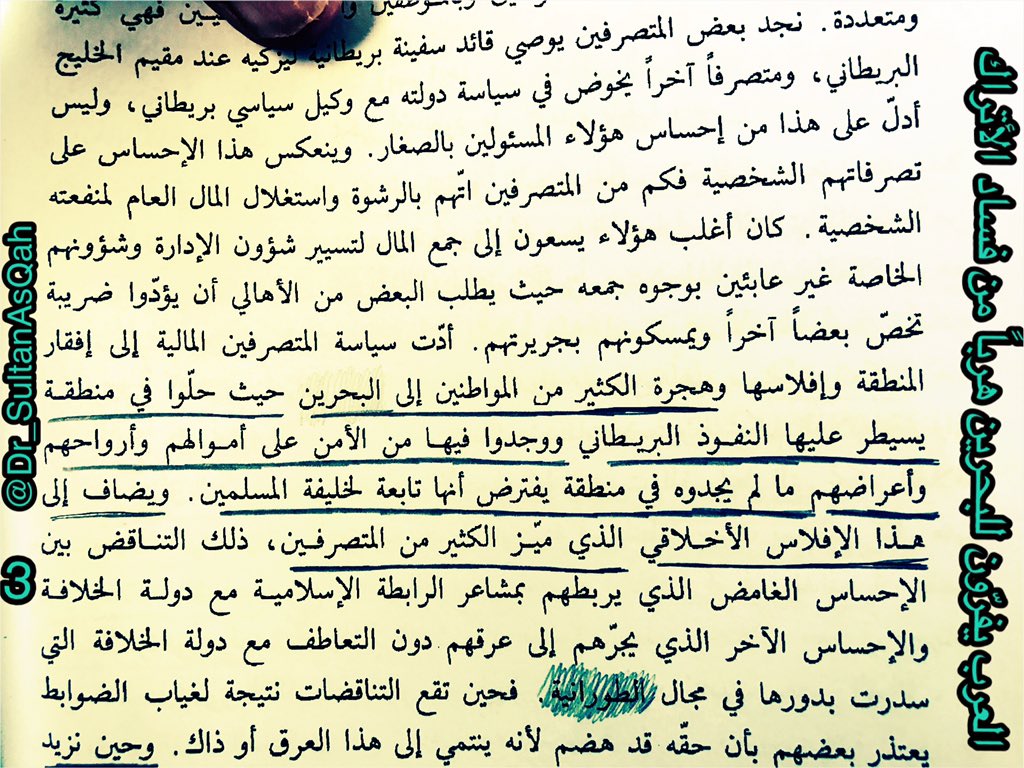 فهي كثيرة
ومتعددة. نجد بعض المتصرفين يوصي قائد سفينة بريطانية ليزكيه عند مقيم الخليج
البريطاني، ومتصرفاً آخراً يخوض في سياسة دولته مع وكيل سياسي بريطاني، وليس
أدلّ على هذا من إحساس هؤلاء المسئولين بالصغار. وينعكس هذا الإحساس على
تصرفاتهم الشخصية فكم من المتصرفين اتّهم بالرشوة واستغلال المال العام لمنفعته
الشخصية. كان أغلب هؤلاء يسعون إلى جمع المال لتسيير شؤون الإدارة وشؤونهم
الخاصة غير عابئين بوجوه جمعه حيث يطلب البعض من الأهالي أن يؤدّوا ضريبة
تخصّ بعضاً آخراً ويمسكونهم بجريرتهم. أدّت سياسة المتصرفين المالية إلى إفقار
المنطقة وإفلاسها وهجرة الكثير من المواطنين إلى البحرين حيث حلّوا في منطقة
يسيطر عليها النفوذ البريطاني ووجدوا فيها من الأمن على أموالهم وأرواحهم
وأعراضهم ما لم يجدوه في منطقة يفترض أنها تابعة لخليفة المسلمين. ويضاف إلى
هذا الإفلاس الأخلاقي الذي ميّز الكثير من المتصرفين، ذلك التناقض بين
الإحساس الغامض الذي يربطهم بمشاعر الرابطة الإسلامية مع دولة الخلافة
والإحساس الآخر الذي يجرّهم إلى عرقهم دون التعاطف مع دولة الخلافة التي
سدرت بدورها في مجال الطورانية فحين تقع التناقضات نتيجة لغياب الضوابط
يعتذر بعضهم بأن حقّه قد هضم لأنه ينتمي إلى هذا العرق أو ذاك. وحين نزيد
العرب يفرّون للبحرين هرباً من فساد الأتراك
@Dr_SultanAsQah
3